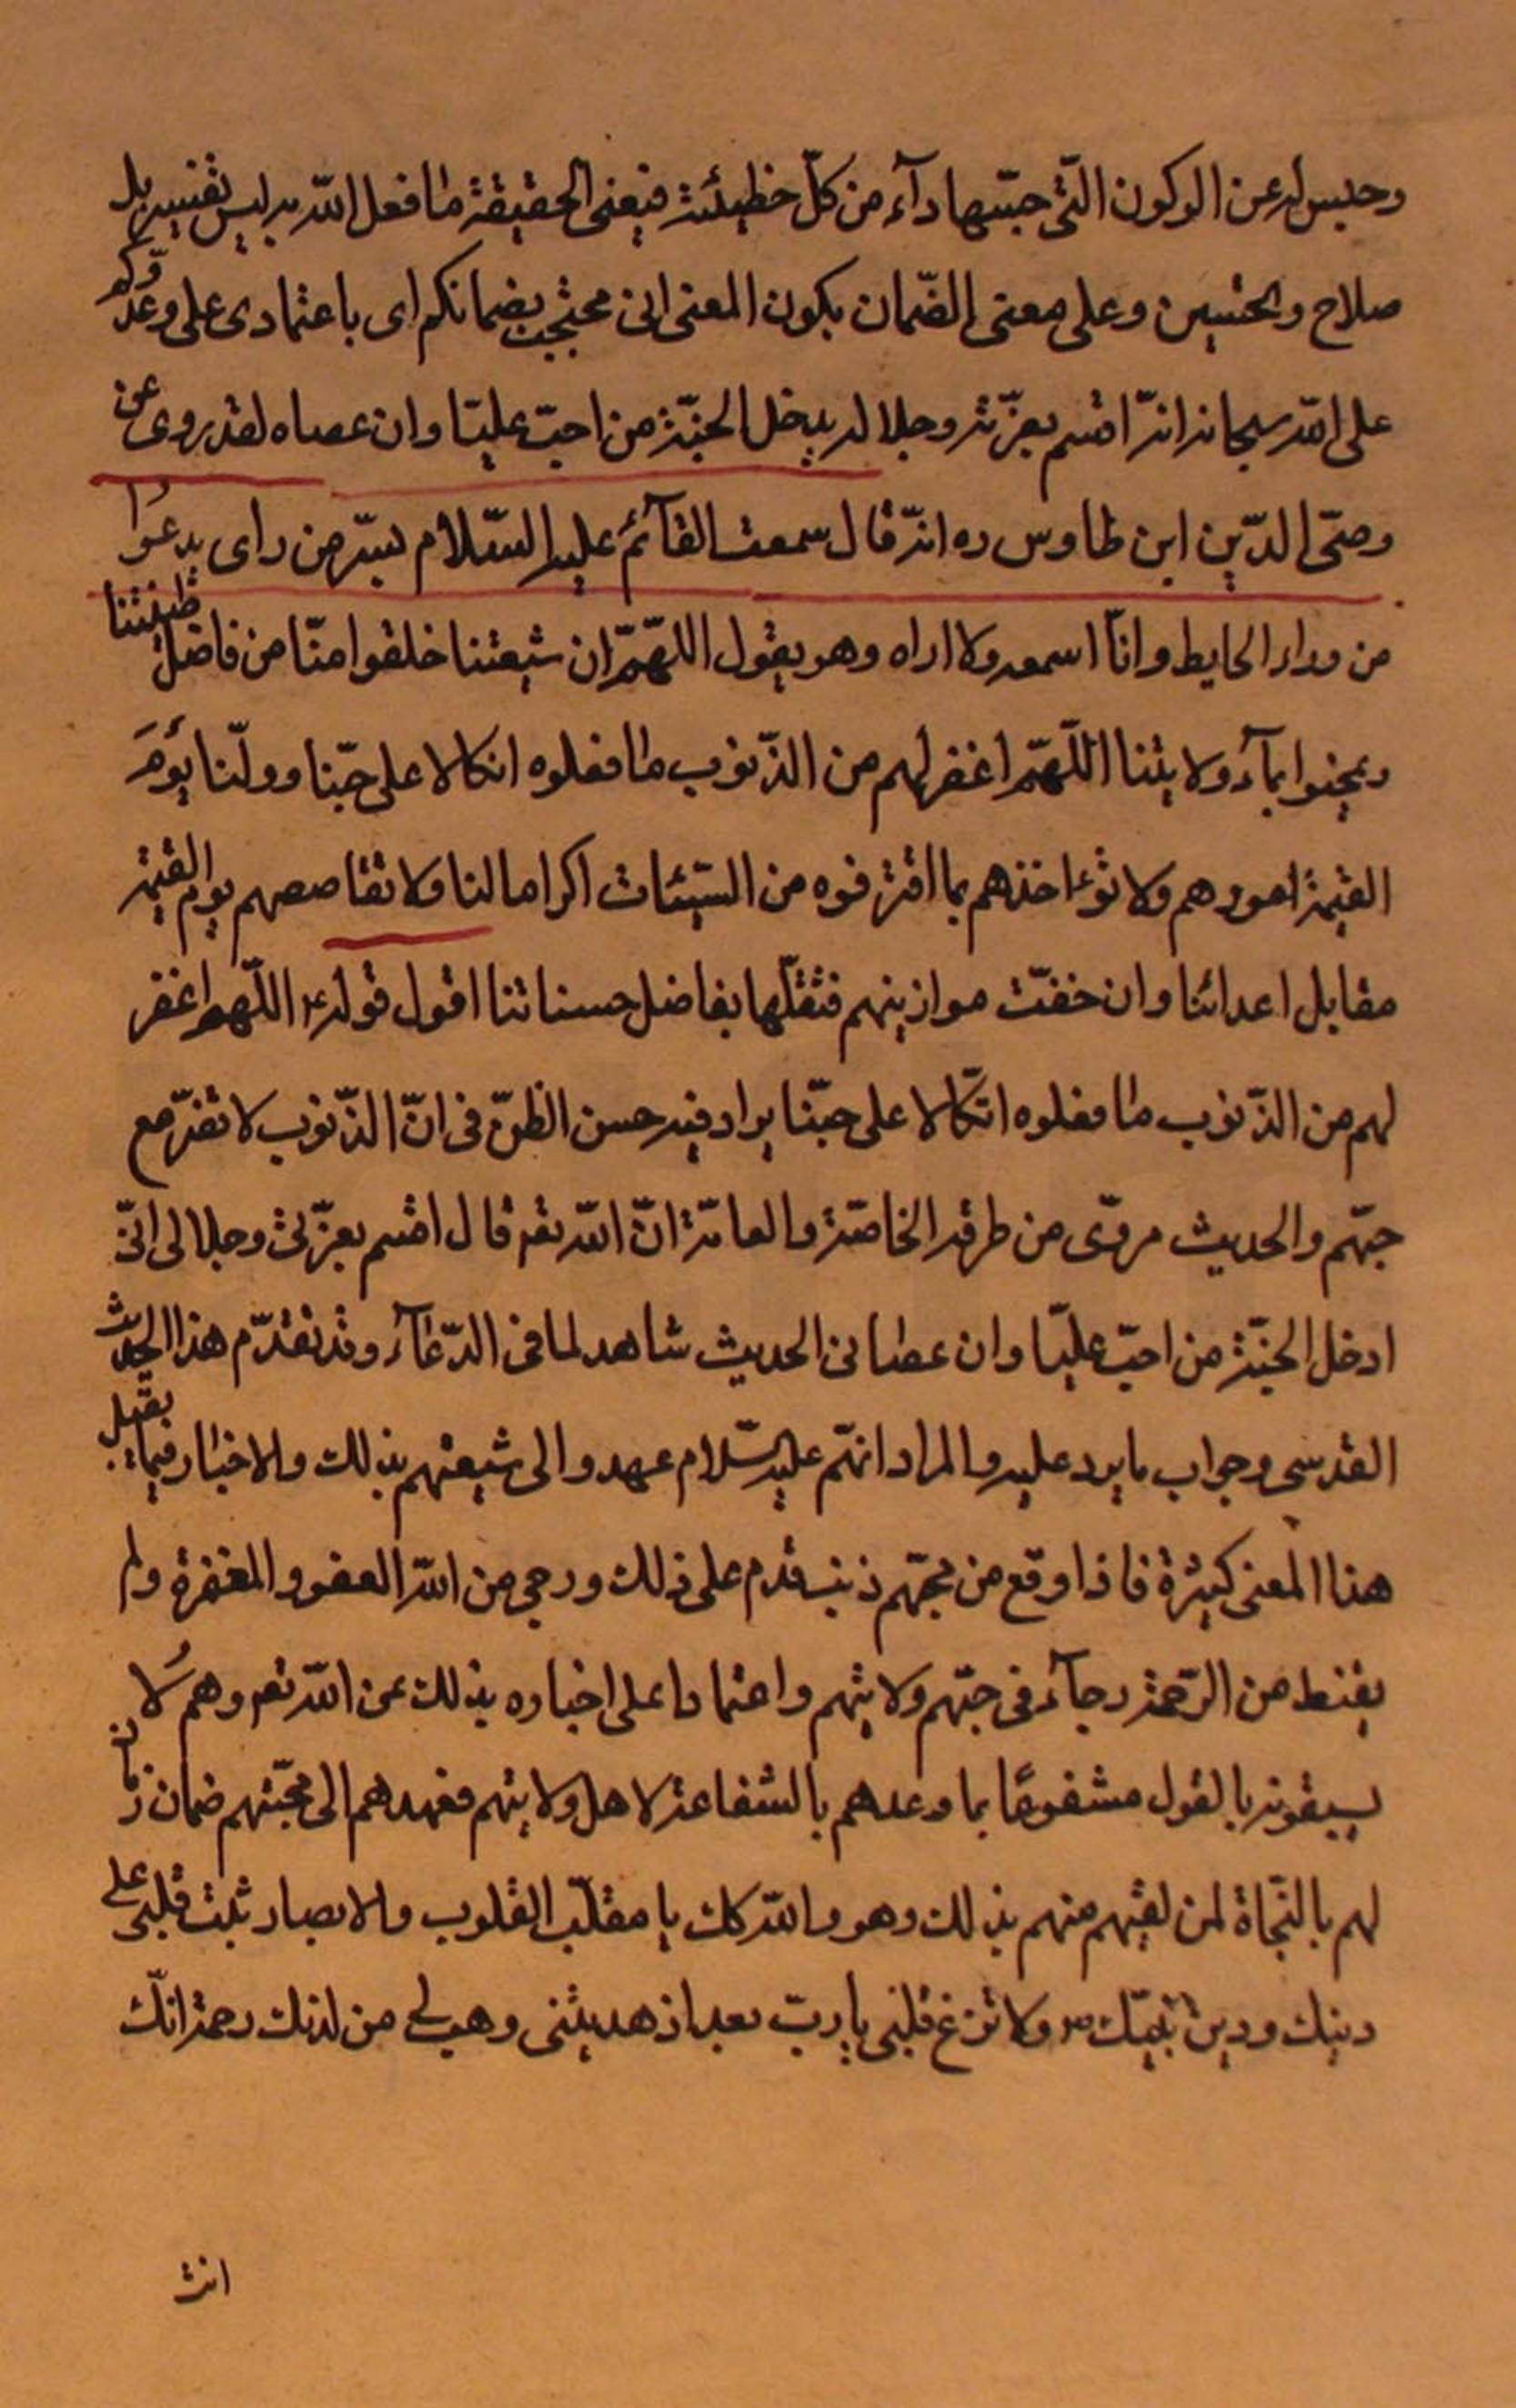 وحبس له عن الركون التى حبّتها دآء من كلّ خطيئته فيعنى الحقيقة ما فعل الله به ليس بقنيه بل
صلاح وتحسين وعلى معنى الضّمان يكون المعنى انى محتجب بضمانكم اى باعتمادى على وعدكم
على الله سبحانه انه اقسم بعزّته وجلاله يدخل الجنّة من احبّ عليّا وان عصاه لقد روى عن
رضىّ الدّين ابن طاوس ره انّه قال سمعت القآئم عليه السّلام بسرّ من راى يدعوا
من وراء الحايط وانا اسمعه ولا اراه وهو يقول اللهمّ ان شيعتنا خلقوا منّا من فاضل طينتنا
وعجنوا بمآء ولايتنا اللّهمّ اغفر لهم من الذّنوب ما فعلوه اتكالا على حبّنا وولّنا يوم
القيمة امورهم ولا تؤاخذهم بما اقترفوه من السّيئات اكراما لنا ولا تقاصصهم يوم القيمة
مقابل اعدائنا وان خفّت موازينهم فثقّلها بفاضل حسناتنا اقول قوله ع اللّهم اغفر
لهم من الذّنوب ما فعلوه اتّكالا على حبّنا يراد فيه حسن الظّنّ فى انّ الذّنوب لا تضرّ مع
حبّهم والحديث مروىّ من طرق الخاصّة والعامّة انّ الله تعه قال اقسم بعزّتى وجلالى انّى
ادخل الجنّة من احبّ عليّا وان عصانى الحديث شاهد لما فى الدّعآء وقد تقدّم هذا الحديث
القدسى وجواب ما يرد عليه والمراد انهّم عليه السّلام عهدوا الى شيعتهم بذلك والاخبار فيما يقبل
هذا المعنى كثيرة فاذا وقع من محبّهم ذنب قدم على ذلك ورجى من الله العفو والمغفرة ولم
يقنط من الرّحمة رجآء فى حبّهم ولايتهم واعتمادا على اخباره بذلك عن الله تعه وهم لا
يسبقونه بالقول مشفوعًا بما وعدهم بالشفاعة لاهل ولايتهم فعهدهم الى محبّيهم ضمان
لهم بالنّجاة لمن لقيهم منهم بذلك وهو والله كك يا مقلّب القلوب والابصار ثبّت قلبى على
دينك ودين نبيّك ص ولا تزغ قلبى يا ربّ بعد اذ هديتنى وهب لى من لدنك رحمة انّك
انت